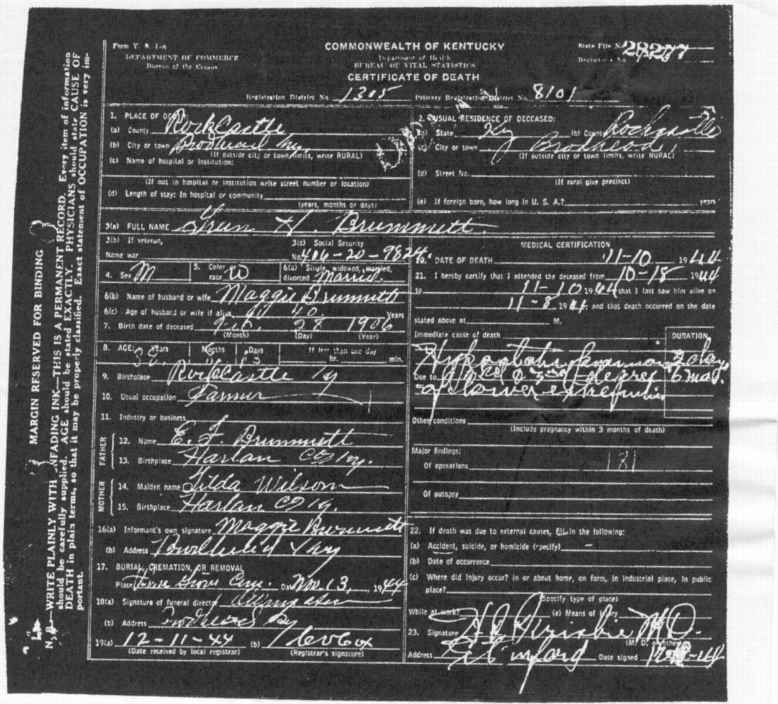 Form V. S. 1-A
DEPARTMENT OF COMMERCE
Bureau of the Census
COMMONWEALTH OF KENTUCKY
Department of Health
BUREAU OF VITAL STATISTICS
CERTIFICATE OF DEATH
State File No. 28277
Registrar's No.
Registration District No. 1305 Primary Registration District No. 8101
1. PLACE OF DEATH
(a) County Rockcastle
(b) City or town Brodhead Ky.
(If outside city or town limits, write RURAL)
(c) Name of hospital or institution:
(If not in hospital or institution write street number or location)
(d) Length of stay: In hospital or community
(years, months or days)
2. USUAL RESIDENCE OF DECEASED:
(a) State Ky (b) County Rockcastle
(c) City or town Brodhead
(If outside city or town limits, write RURAL)
(d) Street No.
(If rural give precinct)
(e) If foreign born, how long in U. S. A.? years
3(a) FULL NAME H. Brummett
3(b) If veteran, Name war
3(c) Social Security No. 406-20-9824
4. Sex M 5. Color or race W 6(a) Single, widowed, married, divorced Married
6(b) Name of husband or wife Maggie Brummett
6(c) Age of husband or wife if alive 40 Years
7. Birth date of deceased Feb. 28 1906
(Month) (Day) (Year)
8. AGE: Years 38 Months Days If less than one day hr. min.
9. Birthplace Rockcastle Ky
10. Usual occupation Farmer
11. Industry or business
FATHER
12. Name E. F. Brummett
13. Birthplace Harlan Co Ky.
MOTHER
14. Maiden name Tilda Wilson
15. Birthplace Harlan Co Ky.
16(a) Informant's own signature Maggie Brummett
(b) Address Brodhead Ky
17. BURIAL, CREMATION, OR REMOVAL
Place Grove Cem. On Nov. 13, 1944
18(a) Signature of funeral director
(b) Address Ky
19(a) 12-11-44 (b) Cox
(Date received by local registrar) (Registrar's signature)
MEDICAL CERTIFICATION
20. DATE OF DEATH 11-10 1944
21. I hereby certify that I attended the deceased from 10-18 1944
to 11-10 1944 that I last saw him alive on
11-8 1944 and that death occurred on the date
stated above at M.
Immediate cause of death
DURATION
Hypostatic Pneumonia 2 days
Due to 2nd & 3rd degree 6 mos.
of lower extremities
Other conditions
(Include pregnancy within 3 months of death)
Major findings:
Of operations 181
Of autopsy
22. If death was due to external causes, fill in the following:
(a) Accident, suicide, or homicide (specify)
(b) Date of occurrence
(c) Where did injury occur? in or about home, on farm, in industrial place, in public place?
(Specify type of place)
While at work? (e) Means of injury
23. Signature M. D.
(M. D. or other)
Address Date signed
MARGIN RESERVED FOR BINDING
N. B.—WRITE PLAINLY WITH UNFADING INK—THIS IS A PERMANENT RECORD. Every item of information
should be carefully supplied. AGE should be stated EXACTLY. PHYSICIANS should state CAUSE OF
DEATH in plain terms, so that it may be properly classified. Exact statement of OCCUPATION is very important.